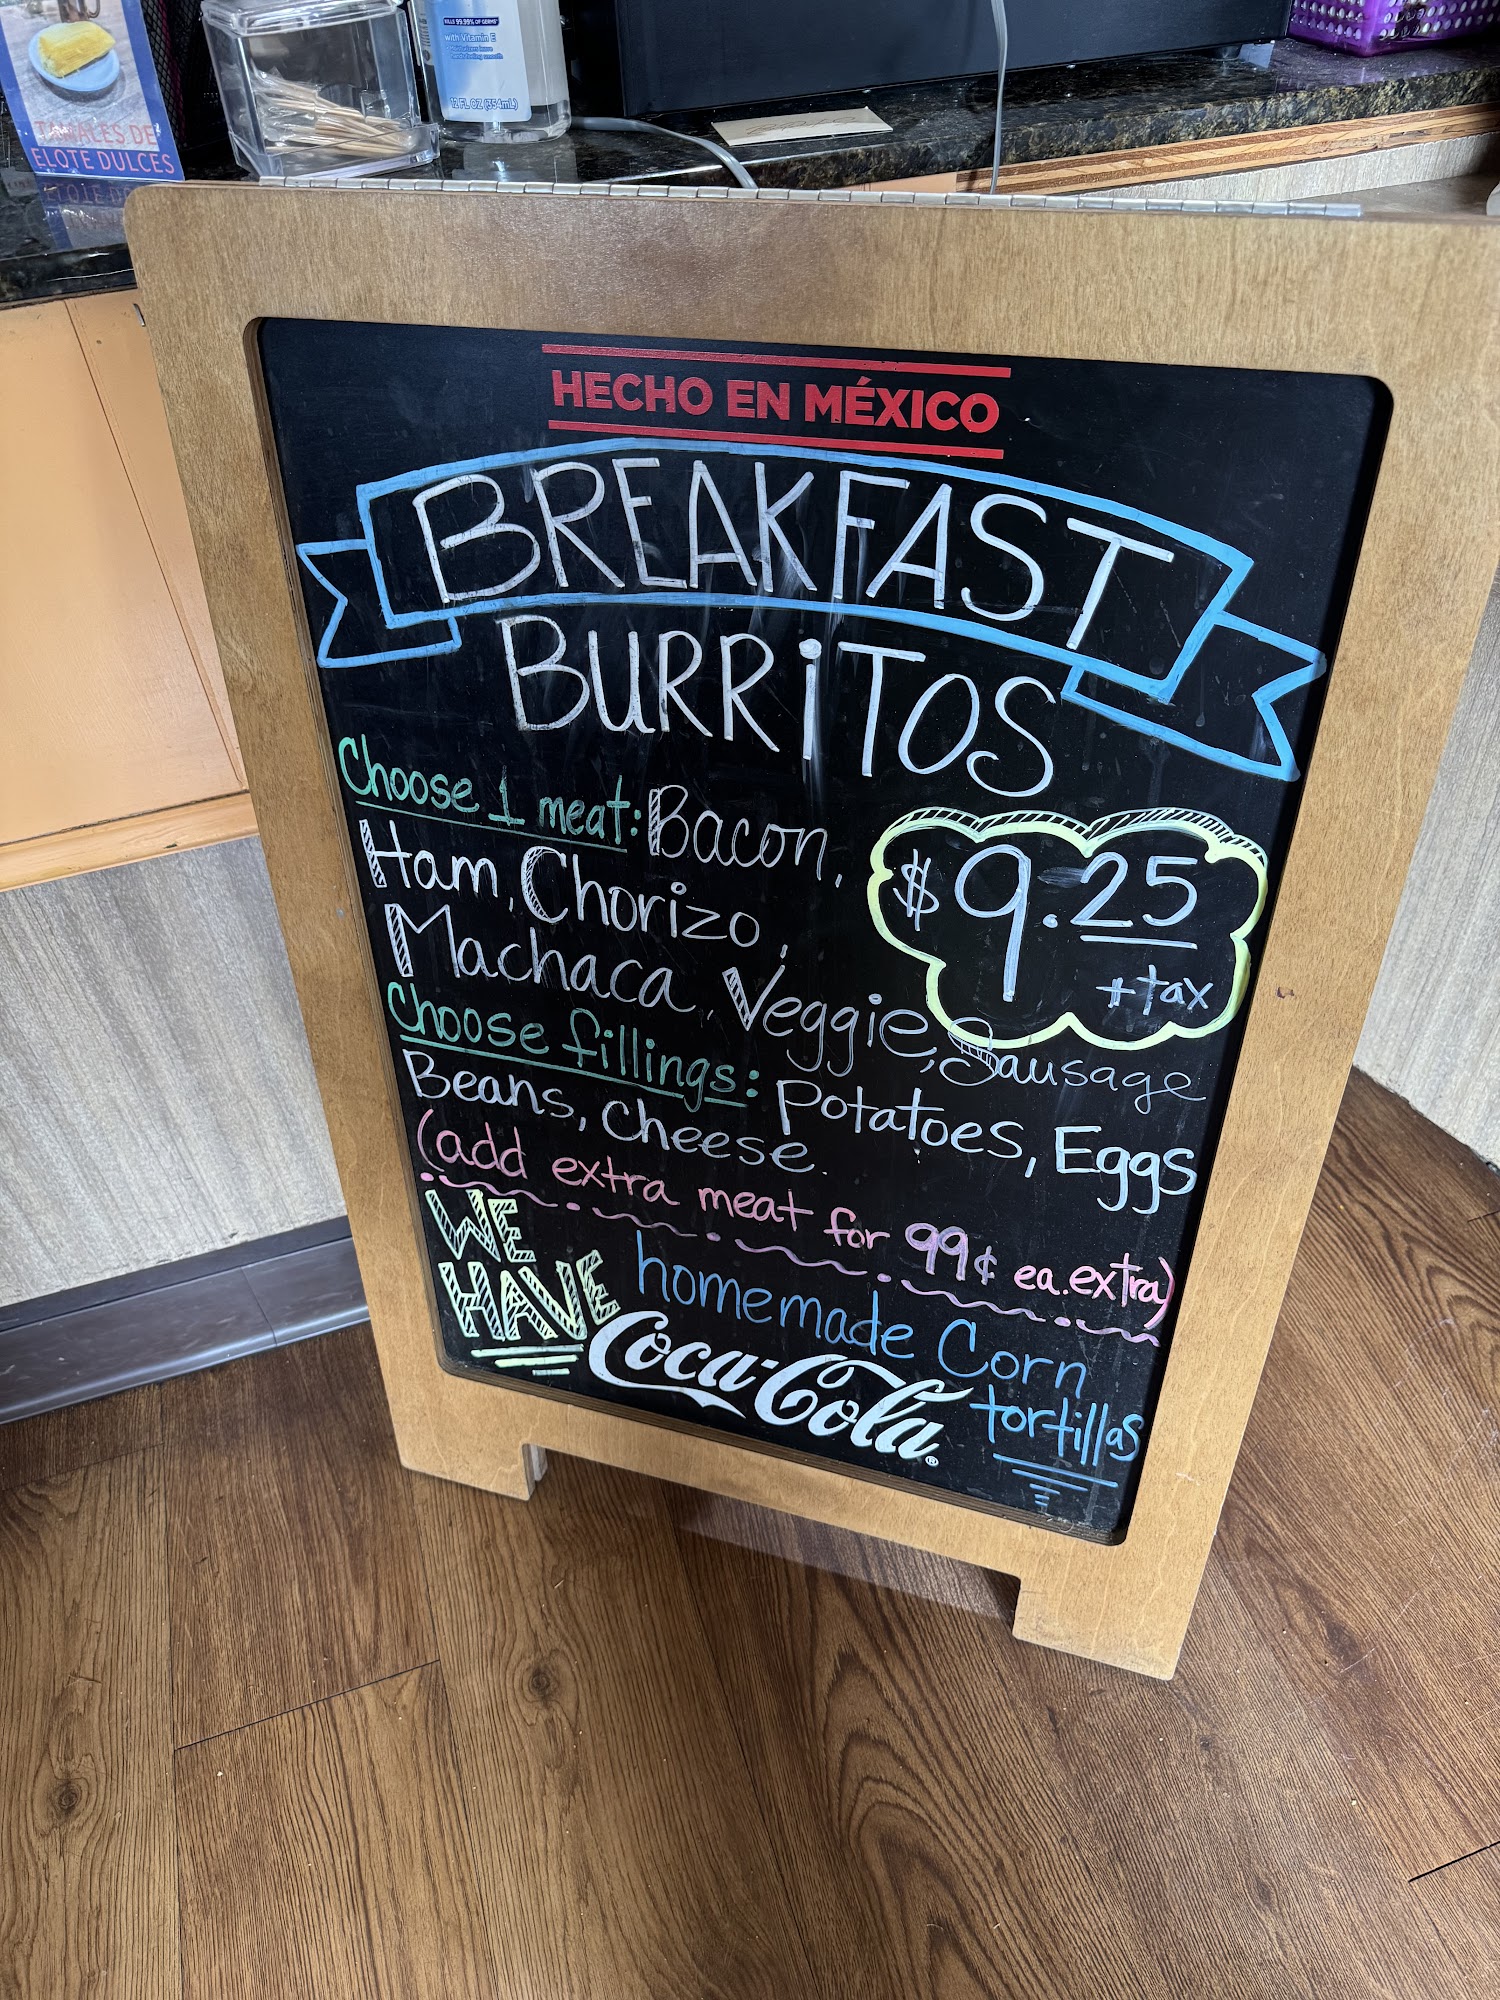 KILLS 99.99% OF GERMS*
with Vitamin E
12 FL OZ (354mL)
TAMALES DE
ELOTE DULCES
HECHO EN MÉXICO
BREAKFAST
BURRiTOS
Choose 1 meat: Bacon,
Ham, Chorizo,
Machaca, Veggie, Sausage
$9.25
+tax
Choose fillings: Potatoes, Eggs
Beans, Cheese.
(add extra meat for 99¢ ea. extra)
WE
HAVE
homemade Corn
tortillas
Coca-Cola®